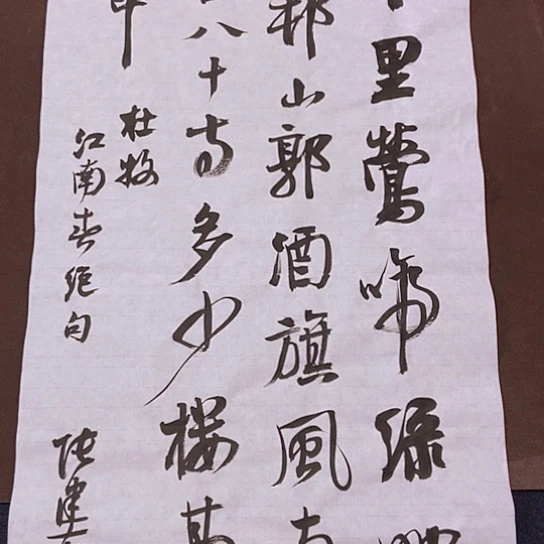 里鶯啼綠
邨山郭酒旗風
八十寺多少樓
中
杜牧
江南春絕句
張建